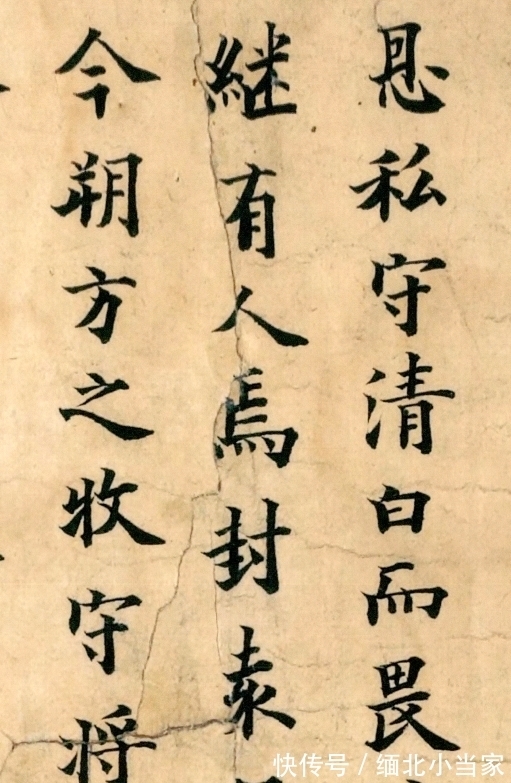 恩私守清白而畏
継有人焉封袁
今朔方之牧守将
快传号 / 缅北小当家